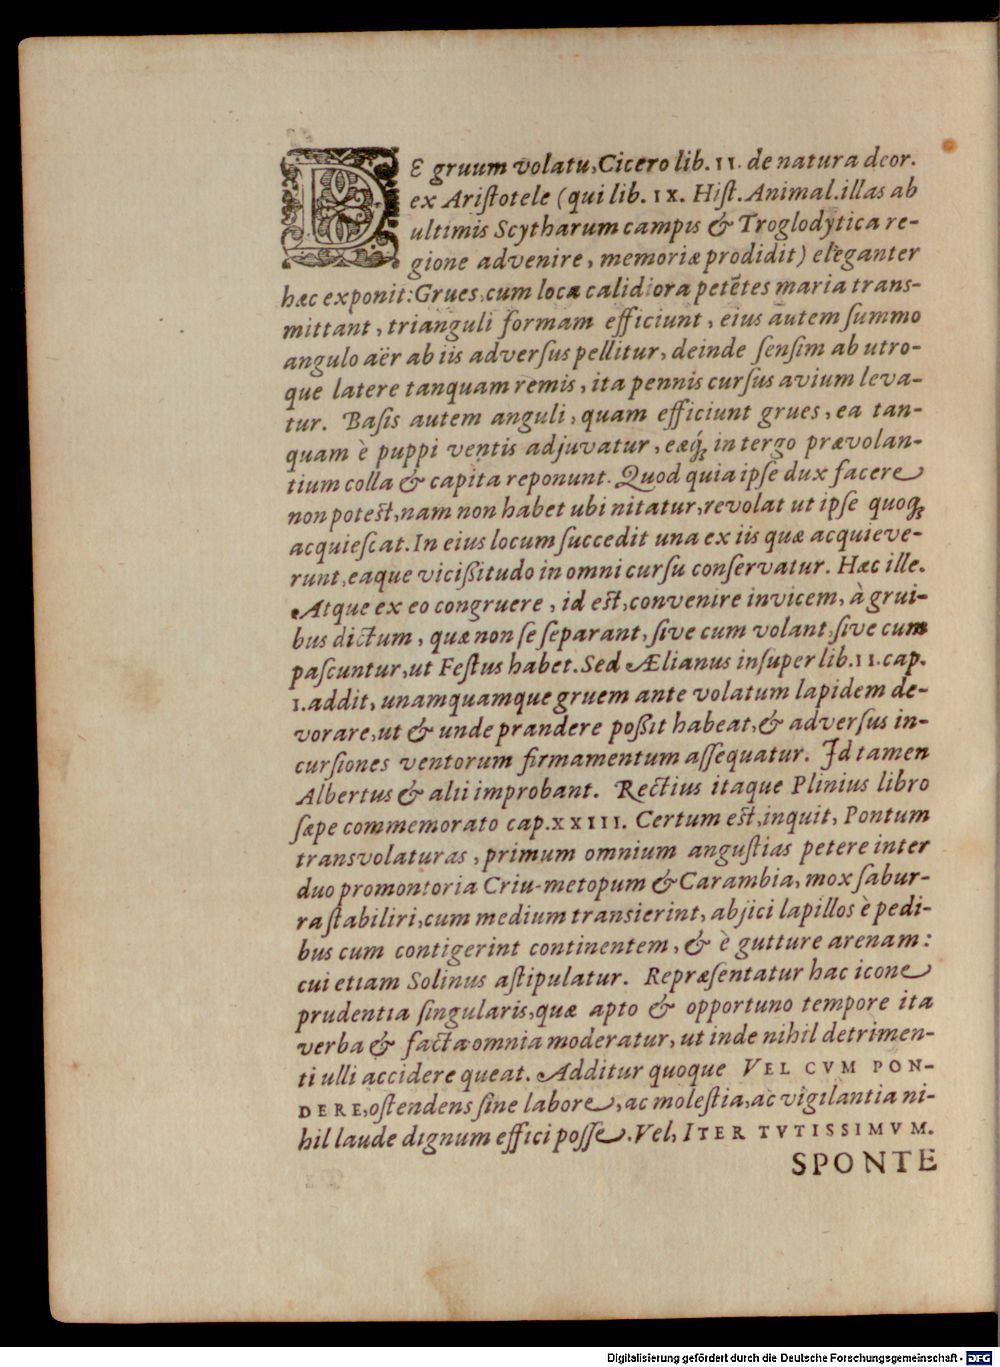 DE gruum volatu, Cicero lib. II. de natura deor.
ex Ariſtotele (qui lib. IX. Hiſt. Animal. illas ab
ultimis Scytharum campis & Troglodytica re-
gione advenire, memoriæ prodidit) eleganter
hæc exponit: Grues, cum loca calidiora petẽtes maria trans-
mittant, trianguli formam efficiunt, eius autem ſummo
angulo aër ab iis adverſus pellitur, deinde ſenſim ab utro-
que latere tanquam remis, ita pennis curſus avium leva-
tur. Baſis autem anguli, quam efficiunt grues, ea tan-
quam è puppi ventis adjuvatur, eæq́; in tergo prævolan-
tium colla & capita reponunt. Quod quia ipſe dux facere
non poteſt, nam non habet ubi nitatur, revolat ut ipſe quoq;
acquieſcat. In eius locum ſuccedit una ex iis quæ acquieve-
runt, eaque viciſsitudo in omni curſu conſervatur. Hæc ille.
Atque ex eo congruere, id eſt, convenire invicem, à grui-
bus dictum, quæ non ſe ſeparant, ſive cum volant, ſive cum
paſcuntur, ut Feſtus habet. Sed Ælianus inſuper lib. II. cap.
I. addit, unamquamque gruem ante volatum lapidem de-
vorare, ut & unde prandere poſsit habeat, & adverſus in-
curſiones ventorum firmamentum aſſequatur. Id tamen
Albertus & alii improbant. Rectius itaque Plinius libro
ſæpe commemorato cap. XXIII. Certum eſt, inquit, Pontum
transvolaturas, primum omnium anguſtias petere inter
duo promontoria Criu-metopum & Carambia, mox ſabur-
ra ſtabiliri, cum medium transierint, abjici lapillos è pedi-
bus cum contigerint continentem, & è gutture arenam:
cui etiam Solinus aſtipulatur. Repræſentatur hac icone
prudentia ſingularis, quæ apto & opportuno tempore ita
verba & facta omnia moderatur, ut inde nihil detrimen-
ti ulli accidere queat. Additur quoque VEL CVM PON-
DERE, oſtendens ſine labore, ac moleſtia, ac vigilantia ni-
hil laude dignum effici poſſe. Vel, ITER TVTISSIMVM.
SPONTE
Digitalisierung gefördert durch die Deutsche Forschungsgemeinschaft - DFG